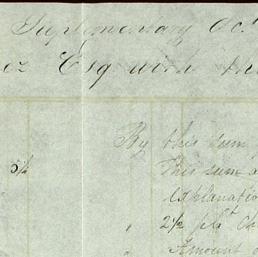 Suplementary Ac.
Esq with
By this sum
5½ This sum
explanation
" 2½ pl.t
" Amount